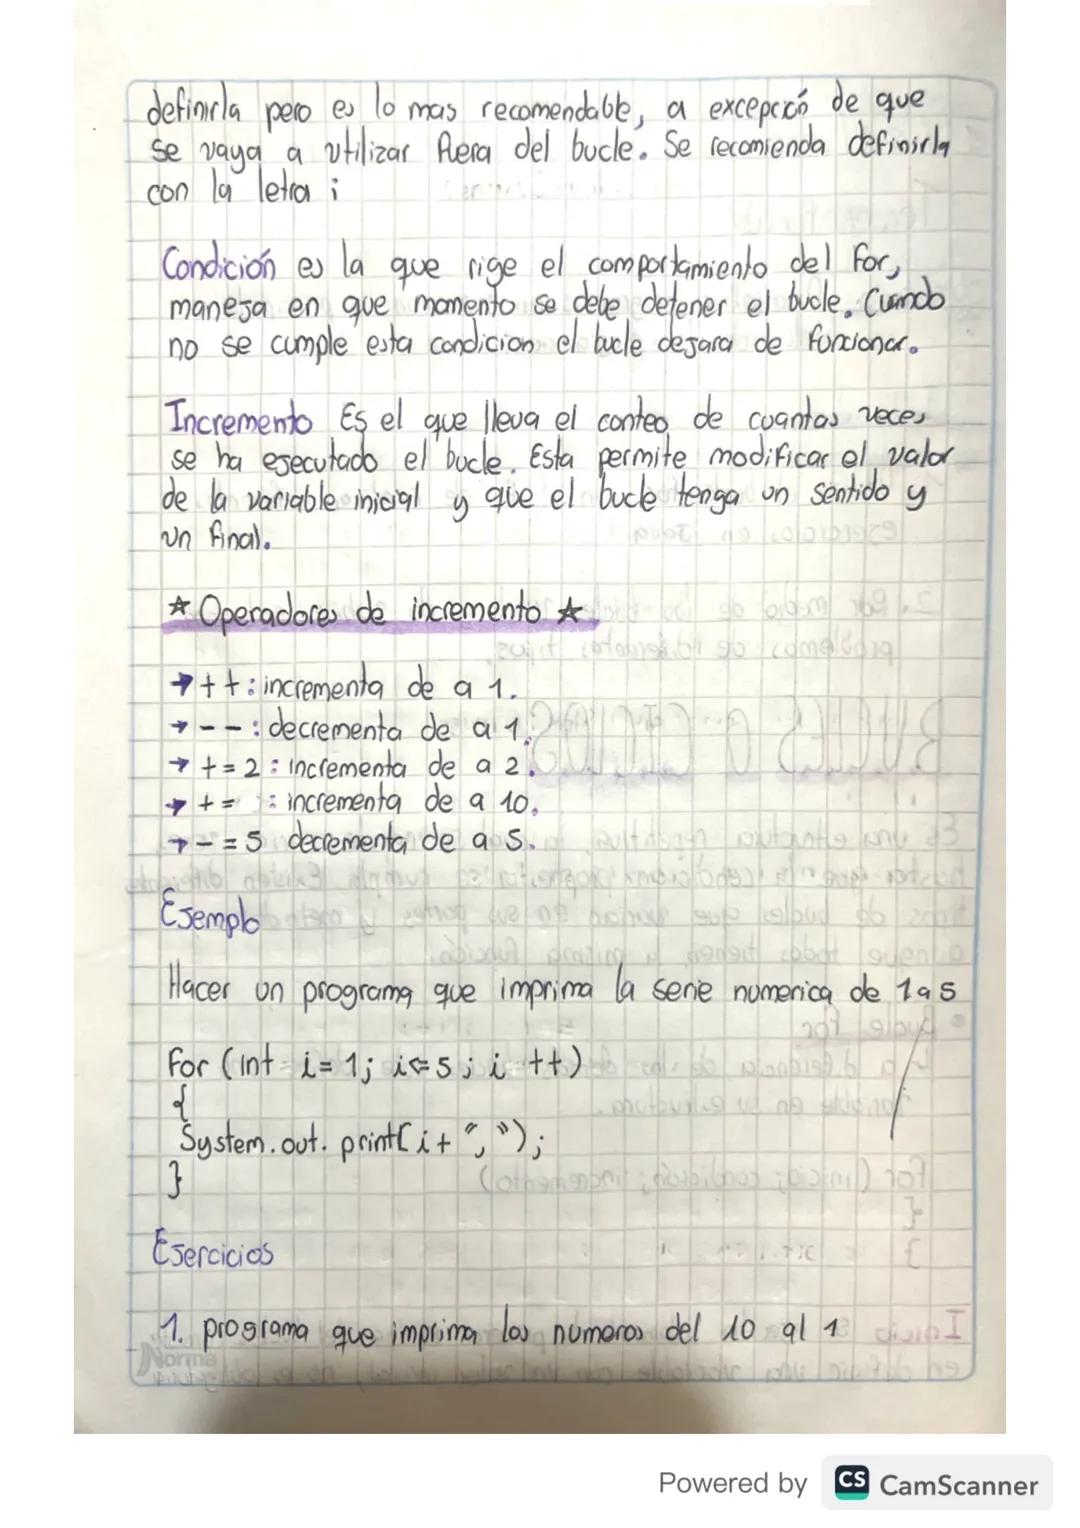 definirla pero es lo mas recomendable, a excepción de que
se vaya a utilizar fuera del bucle. Se recomienda definirla
con la letra i
Condición es la que rige el comportamiento del for,
maneja en que momento se debe detener el bucle. Cuando
no se cumple esta condicion el bucle dejara de funcionar.
Incremento Es el que lleva el conteo de cuantas veces
se ha ejecutado el bucle. Esta permite modificar el valor
de la variable inicial y que el bucle tenga un sentido y
un final.
★ Operadores de incremento ★
→ ++: incrementa de a 1.
→ --: decrementa de a 1.
→ += 2: incrementa de a 2.
→ += : incrementa de a 10.
→ -= 5 decrementa de a 5.
Ejemplo
Hacer un programa que imprima la serie numerica de 1 a 5
for (int i= 1; i<=5; i ++)
{
System.out. print(i+ ", ");
}
Ejercicios
1. programa que imprima los numeros del 10 al 1
Norma
Powered by CS CamScanner